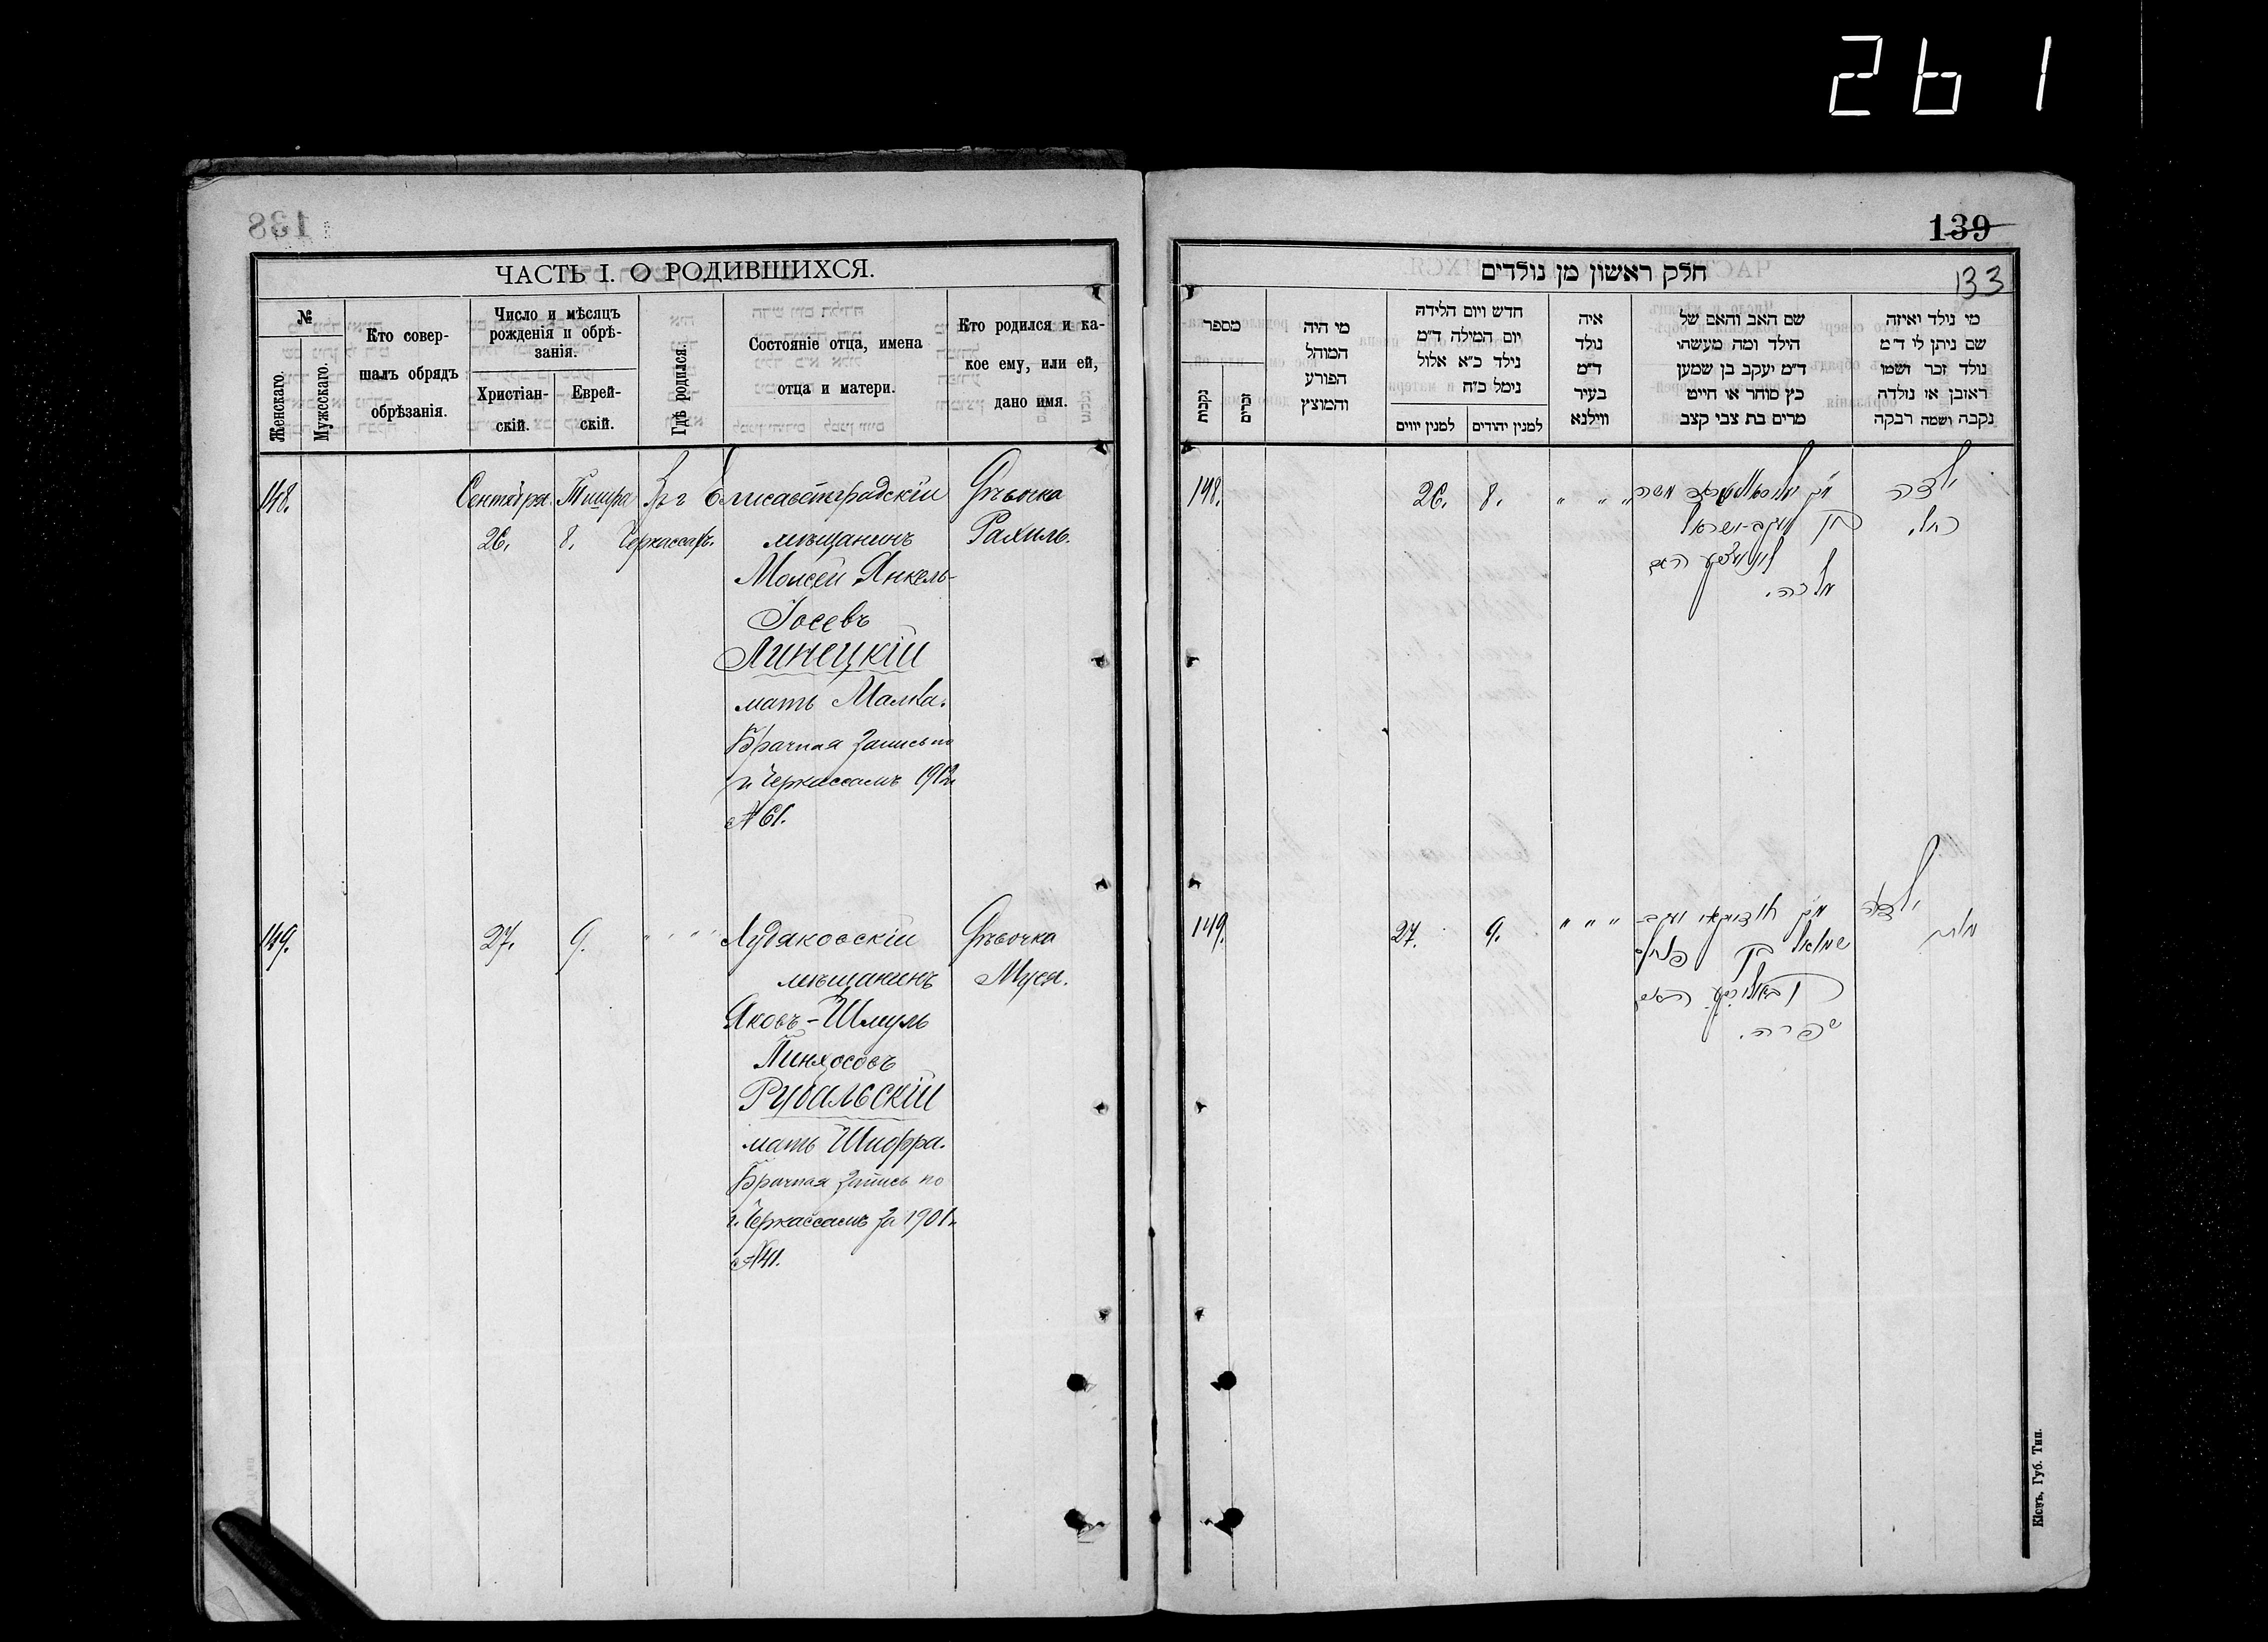 261
138
ЧАСТЬ I. О РОДИВШИХСЯ.
№
Женскаго.
Мужескаго.
Кто совер-
шалъ обрядъ
обрѣзанія.
Число и мѣсяцъ
рожденія и обрѣ-
занія.
Христіан-
скій.
Еврей-
скій.
Гдѣ родился.
Состояніе отца, имена
отца и матери.
Кто родился и ка-
кое ему, или ей,
дано имя.
148.
Сентября
26.
Тишра
8.
Въ г
Черкассахъ.
Елисаветградскій
мѣщанинъ
Моисей Янкель-
Іосевъ
Линецкій
мать Малка.
Брачная запись по
г. Черкассамъ 1912г
№ 61.
Дѣвочка
Рахиль.
149.
27.
9.
" " "
мѣщанинъ
Яковъ-Шмуль
Пинхосовъ
мать Шифра.
Брачная запись по
г. Черкассамъ за 1901г.
№ 41.
Дѣвочка
Муся.
139
133
חלק ראשון מן נולדים
מספר
נקבות
זכרים
מי היה
המוהל
הפורע
והמוצץ
חדש ויום הלידה
יום המילה ד״מ
נילד כ״א אלול
נימל כ״ח
למנין יווים
למנין יהודים
איה
נולד
ד״מ
בעיר
ווילנא
שם האב והאם של
הילד ומה מעשתו
ד״מ יעקב בן שמען
כץ סוחר או חייט
מרים בת צבי קצב
מי נילד ואיזה
שם ניתן לו ד״מ
נולד זכר ושמו
ראובן או נולדה
נקבה ושמה רבקה
148.
26.
8.
" " "
משה
האם
מלכה.
ילדה
רחל.
149.
27.
9.
" " "
שמואל בן פנחס
האם
שפרה.
ילדה
Кіевъ, Губ. Тип.